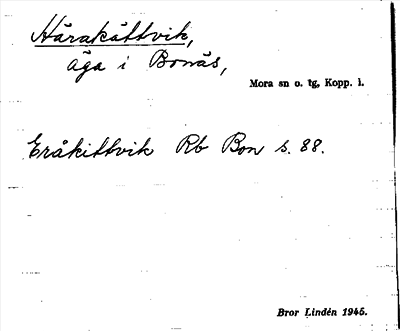 Hårakåttvik,
äga i Bonäs,
Mora sn o. tg, Kopp. l.
Eråkittvik Rb Bon s. 88.
Bror Lindén 1945.